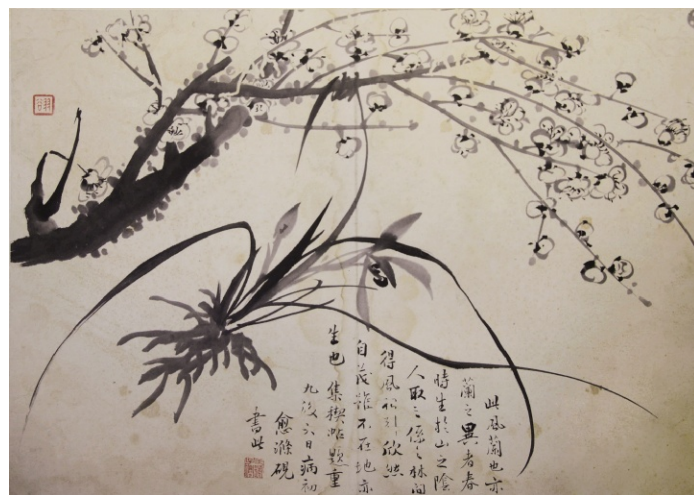 此風蘭也亦
蘭之異者春
時生於山之陰
人取之係之林間
得風為引欣然
自茂雖不在地亦
生也集禊帖題重
九後六日病初
愈滌硯
書此